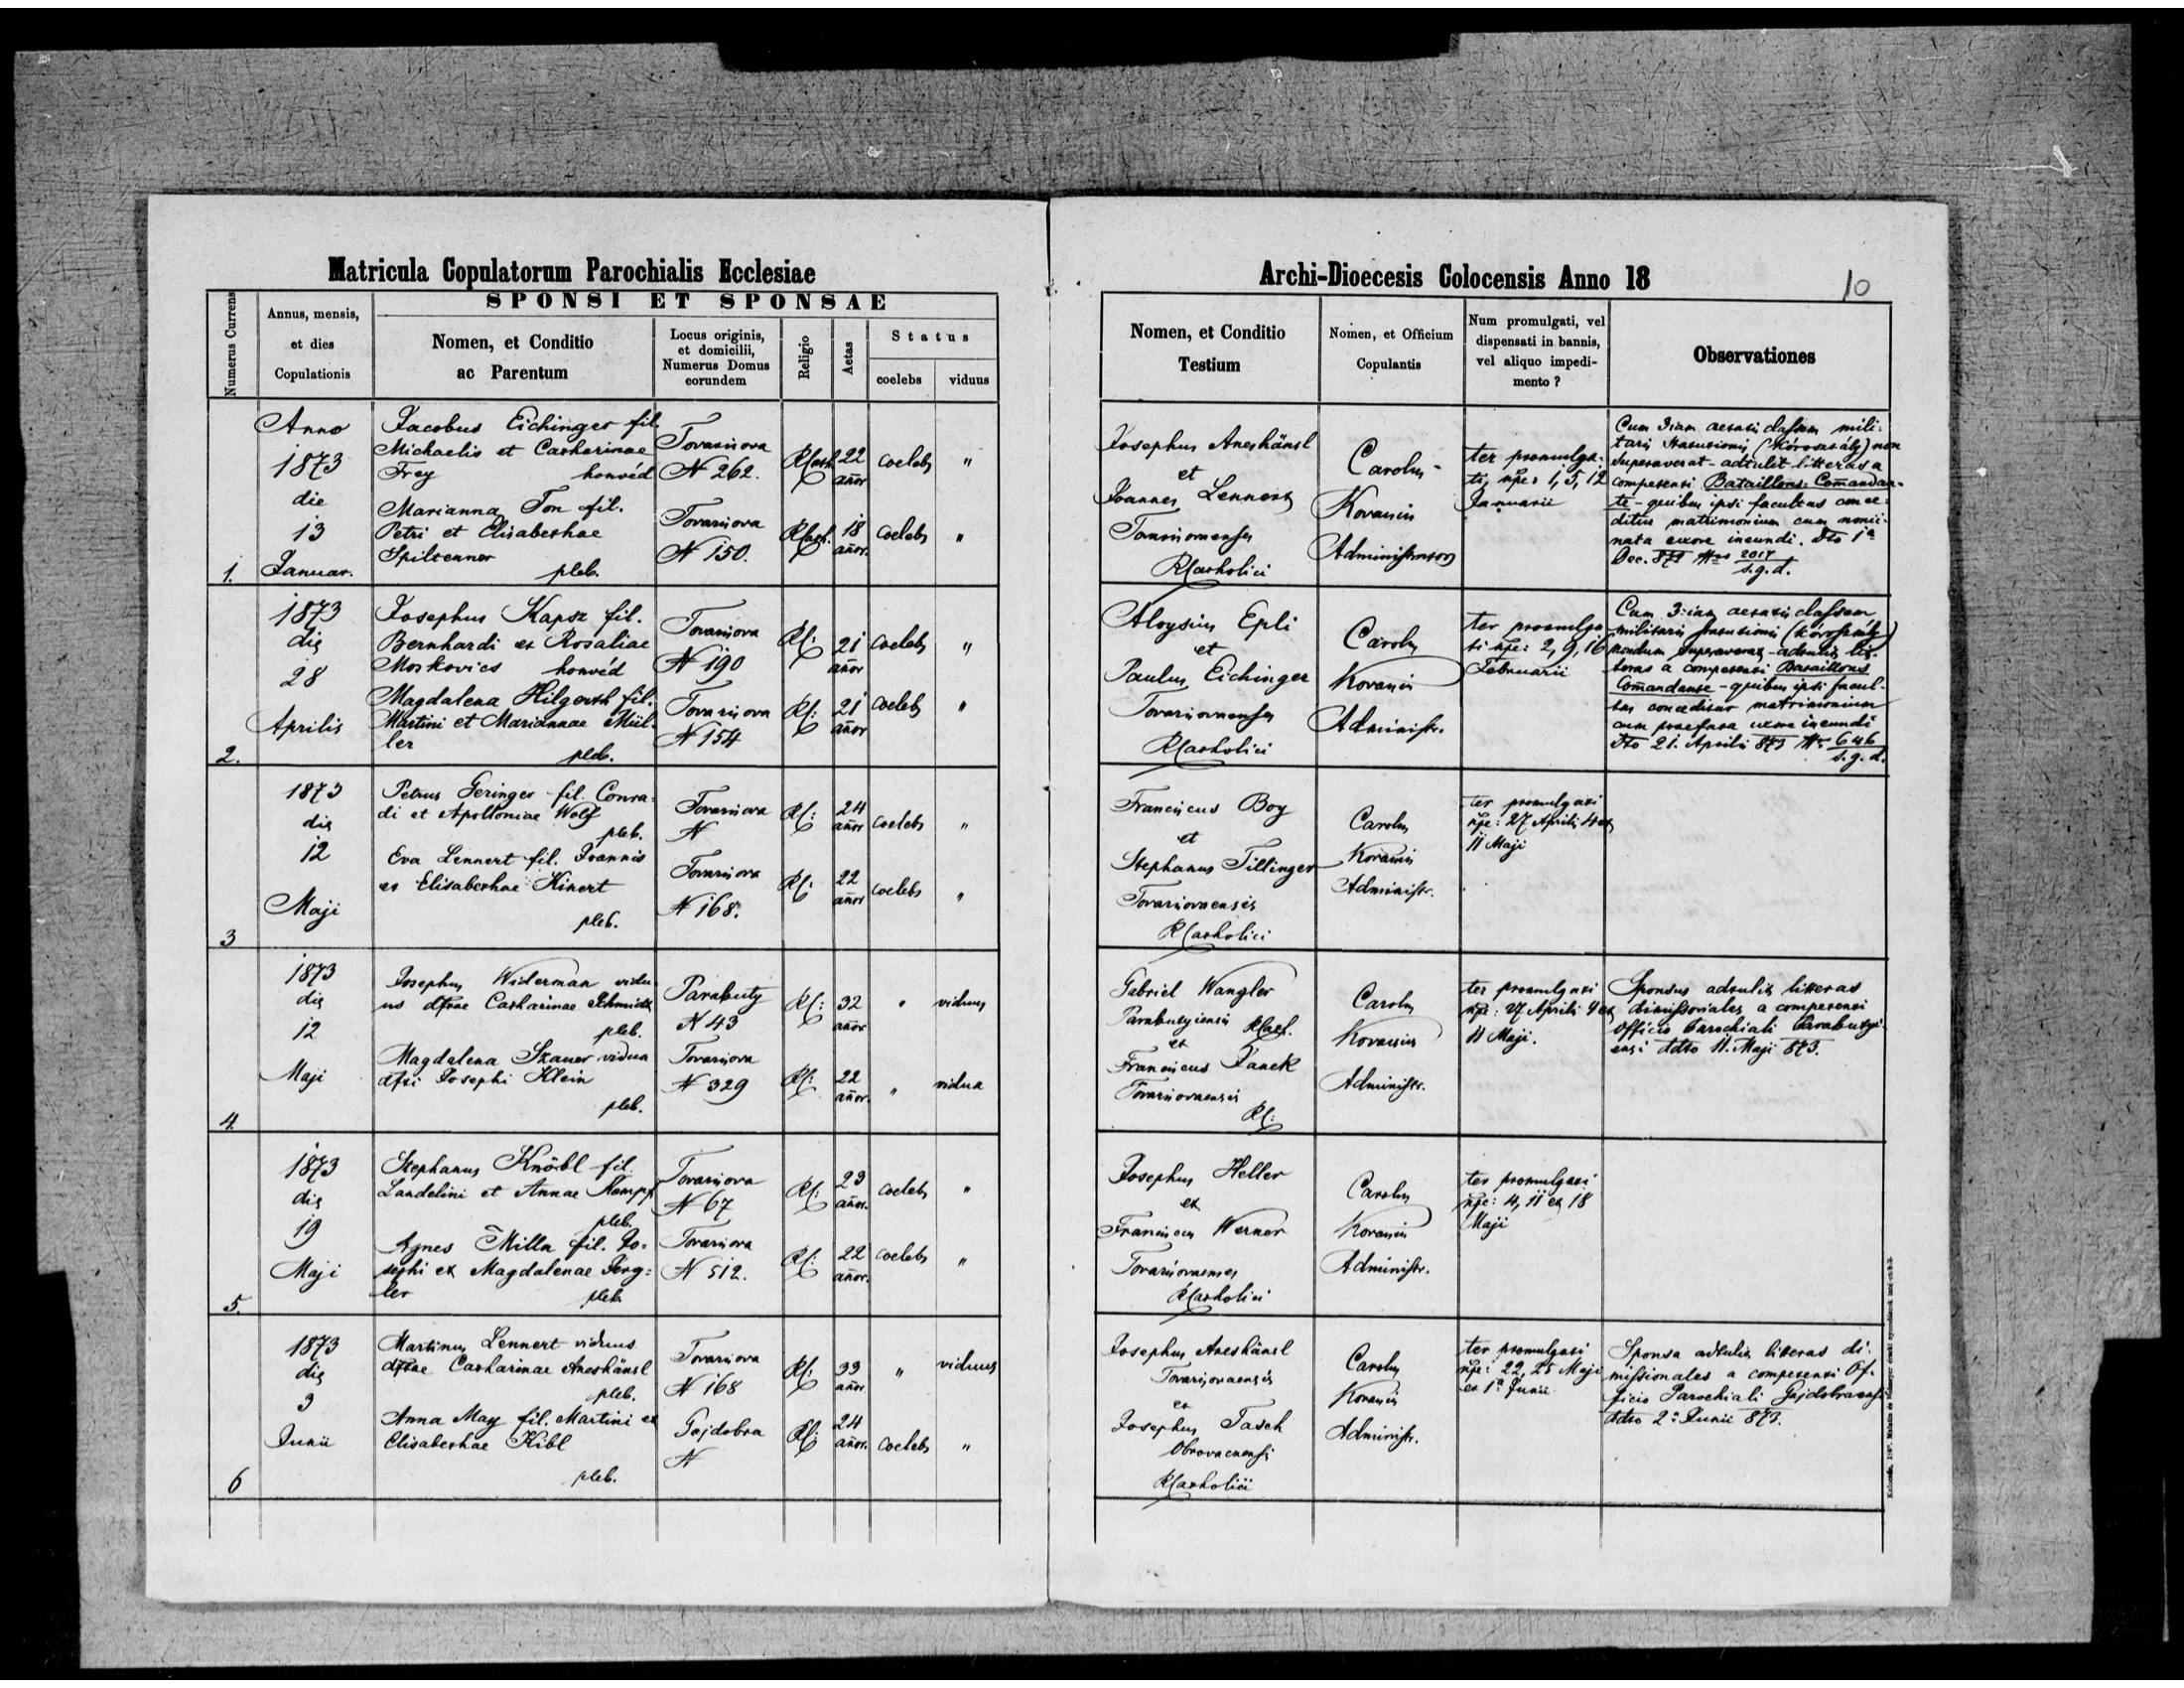 Matricula Copulatorum Parochialis Ecclesiae
Archi-Dioecesis Colocensis Anno 18
10
Numerus Currens
Annus, mensis,
et dies
Copulationis
SPONSI ET SPONSAE
Nomen, et Conditio
ac Parentum
Locus originis,
et domicilii,
Numerus Domus
eorundem
Religio
Aetas
Status
coelebs
viduus
Nomen, et Conditio
Testium
Nomen, et Officium
Copulantis
Num promulgati, vel
dispensati in bannis,
vel aliquo impedi-
mento ?
Observationes
1.
Anno
1873
die
13
Januar.
Jacobus Eichinger fil.
Michaelis et Catharinae
Frey honvéd
Tovarisova
N 262.
RCath.
22
añor
coelebs
"
Marianna Ton fil.
Petri et Elisabethae
Spiltenner
pleb.
Tovarisova
N 150.
RCath.
18
añor.
coelebs
"
Josephus Aneshänsl
et
Joannes Lennert
Tovarisovaenses
RCatholici
Carolus
Kovacsics
Administrator
ter promulga-
ti, npe: 1, 5, 12
Januarii
Cum 3iam aetatis classem mili-
taris statutionis (Kórosztály) non
superaverat - adtulit litteras a
competenti Bataillons-Comandan-
te - quibus ipsi facultas conce-
ditur matrimonium cum nomi-
nata uxore ineundi. Dto 1a
Dec. 872 Nro 2017
s.g.d.
2.
1873
die
28
Aprilis
Josephus Kapsz fil.
Bernhardi et Rosaliae
Moskovics honvéd
Tovarisova
N 190
RC:
21
añor
coelebs
"
Magdalena Hilgerth fil.
Martini et Mariannae Mül-
ler
pleb.
Tovarisova
N 154
RC:
21
añor
coelebs
"
Aloysius Epli
et
Paulus Eichinger
Tovarisovaenses
RCatholici
Carolus
Kovacsics
Administr.
ter promulga-
ti npe: 2, 9, 16
Februarii
Cum 3:iam aetatis classem
militaris statutionis (kórosztály)
nondum superaverat - adtulit lit-
teras a competenti Bataillons
Comandante - quibus ipsi facul-
tas conceditur matrimonium
cum praefata uxore ineundi
Dto 21. Aprilis 873 Nro 646
s.g.d.
3
1873
die
12
Maji
Petrus Geringer fil. Conra-
di et Apolloniae Wolf
pleb.
Tovarisova
N
RC:
24
añor
coelebs
"
Eva Lennert fil. Joannis
et Elisabethae Kinert
pleb.
Tovarisova
N 168.
RC:
22
añor
coelebs
"
Franciscus Boy
et
Stephanus Tillinger
Tovarisovaensis
RCatholici
Carolus
Kovacsics
Administr.
ter promulgati
npe: 27 Aprilis 4 et
11 Maji
4.
1873
die
12
Maji
Josephus Widerman vidu-
us dftae Catharinae Schmidt
pleb.
Parabuty
N 43
RC:
32
añor
"
viduus
Magdalena Szauer vidua
dfti Josephi Klein
pleb.
Tovarisova
N 329
RC:
22
añor.
"
vidua
Gabriel Wangler
Parabutyiensis RCath.
et
Franciscus Janek
Tovarisovaensis
RC:
Carolus
Kovacsics
Administr.
ter promulgati
npe: 27 Aprilis 4 et
11 Maji.
Sponsus adtulit litteras
dimissoriales a competenti
Officio Parochiali Parabutyi-
ensi ddto 11. Maji 873.
5.
1873
die
19
Maji
Stephanus Knöbl fil.
Landelini et Annae Kempf
pleb.
Tovarisova
N 67
RC:
23
añor.
coelebs
"
Agnes Milla fil. Jo-
sephi et Magdalenae Ferg-
ler
pleb.
Tovarisova
N 512.
RC:
22
añor.
coelebs
"
Josephus Heller
et
Franciscus Werner
Tovarisovaenses
RCatholici
Carolus
Kovacsics
Administr.
ter promulgati
npe: 4, 11 et 18
Maji
6
1873
die
3
Junii
Martinus Lennert viduus
dftae Catharinae Aneshänsl
pleb.
Tovarisova
N 168
RC:
33
añor.
"
viduus
Anna May fil. Martini et
Elisabethae Kibl
pleb.
Gajdobra
N
RC:
24
añor.
coelebs
"
Josephus Aneshänsl
Tovarisovaensis
et
Josephus Tasch
Obrovacnensis
RCatholici
Carolus
Kovacsics
Administr.
ter promulgati
npe: 22, 25 Maji
et 1a Junii
Sponsa adtulit litteras di-
missionales a competenti Of-
ficio Parochiali Gajdobraensi
ddto 2a Junii 873.